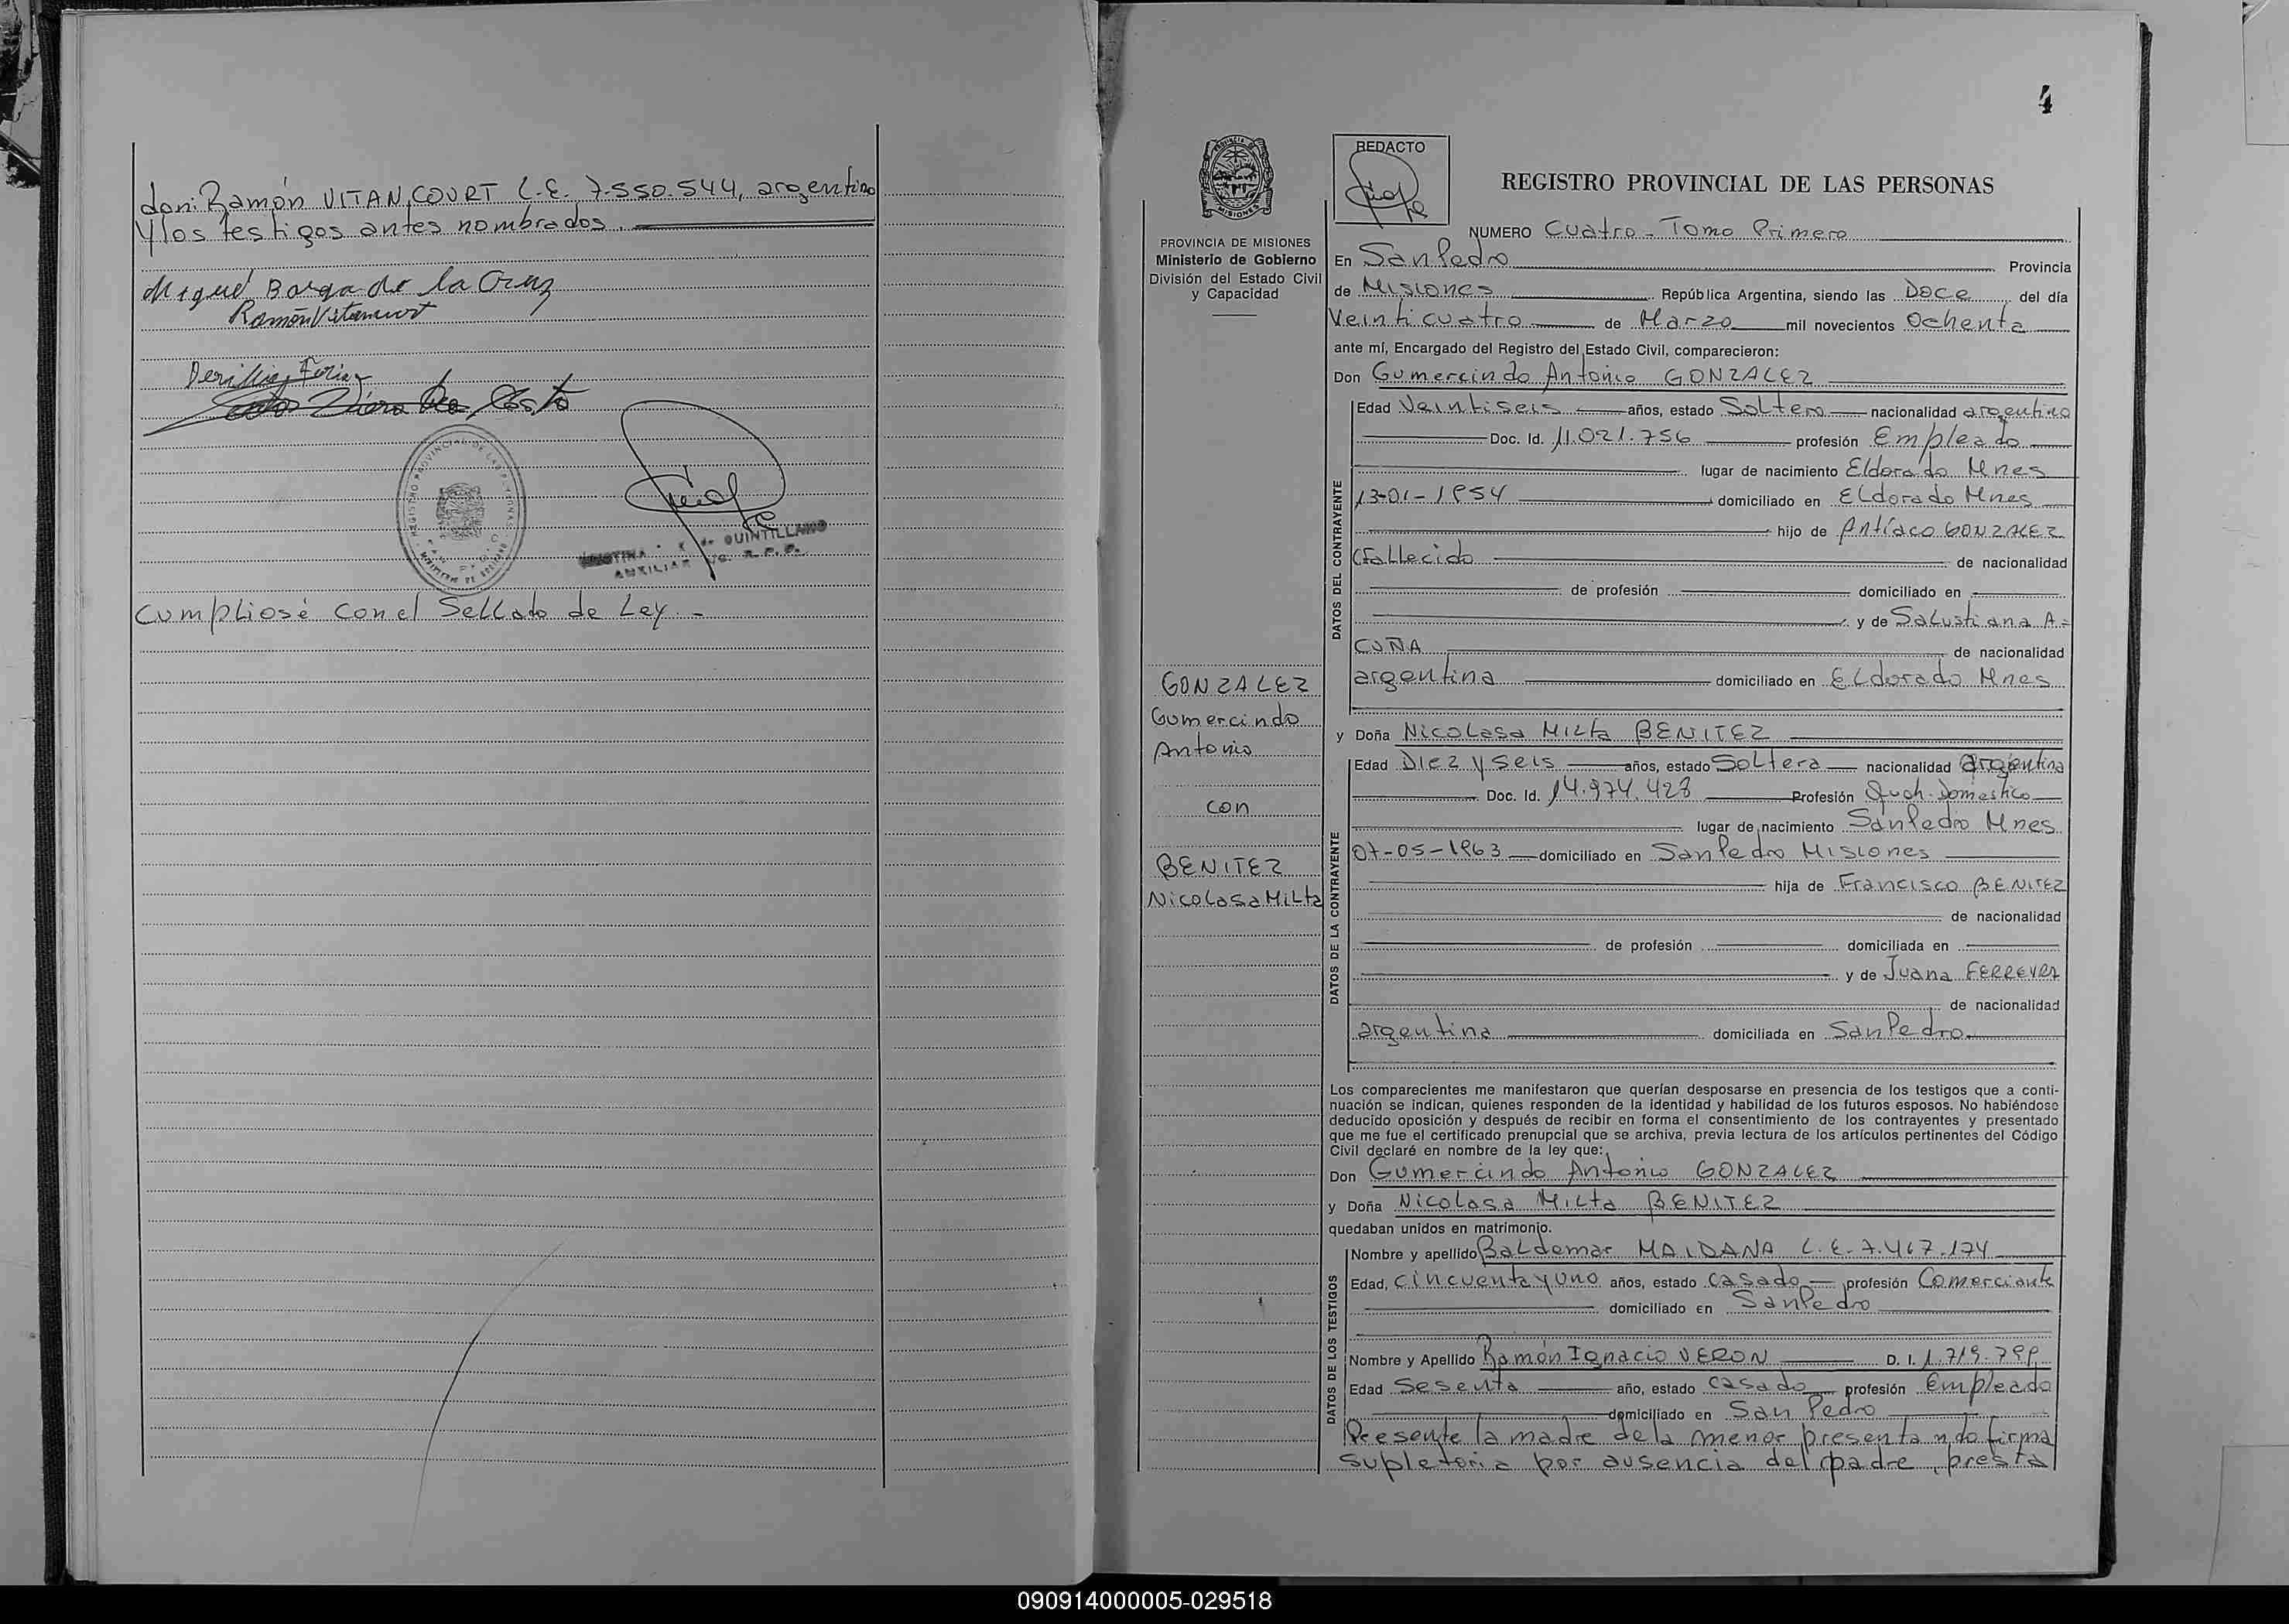 don: Ramón VITANCOURT L.E. 7.550.544, argentino
y los testigos antes nombrados.
Miguel Borga de la Cruz
Ramón Vitancurt
Costa
REGISTRO PROVINCIAL DE LAS PERSONAS
QUINTILLANO
AUXILIAR
Cumpliosé con el Sellado de Ley.-
4
PROVINCIA DE MISIONES
Ministerio de Gobierno
División del Estado Civil
y Capacidad
GONZALEZ
Gumercindo
Antonio
con
BENITEZ
Nicolasa Milta
REDACTO
REGISTRO PROVINCIAL DE LAS PERSONAS
NUMERO Cuatro - Tomo Primero
En San Pedro Provincia
de Misiones República Argentina, siendo las Doce del día
Veinticuatro de Marzo mil novecientos Ochenta
ante mí, Encargado del Registro del Estado Civil, comparecieron:
Don Gumercindo Antonio GONZALEZ
DATOS DEL CONTRAYENTE
Edad Veintiseis años, estado Soltero nacionalidad argentino
Doc. Id. 11.021.756 profesión Empleado
lugar de nacimiento Eldorado Mnes
13-01-1954 domiciliado en Eldorado Mnes
hijo de Antíaco GONZALEZ
(fallecido de nacionalidad
de profesión domiciliado en
y de Salustiana A=
CUÑA de nacionalidad
argentina domiciliado en Eldorado Mnes
y Doña Nicolasa Milta BENITEZ
DATOS DE LA CONTRAYENTE
Edad Diez y seis años, estado Soltera nacionalidad argentina
Doc. Id. 14.974.428 Profesión Queh. Domestico
lugar de nacimiento San Pedro Mnes
07-05-1963 domiciliado en San Pedro Misiones
hija de Francisco BENITEZ
de nacionalidad
de profesión domiciliada en
y de Juana FERREYRA
de nacionalidad
argentina domiciliada en San Pedro
Los comparecientes me manifestaron que querían desposarse en presencia de los testigos que a conti-
nuación se indican, quienes responden de la identidad y habilidad de los futuros esposos. No habiéndose
deducido oposición y después de recibir en forma el consentimiento de los contrayentes y presentado
que me fue el certificado prenupcial que se archiva, previa lectura de los artículos pertinentes del Código
Civil declaré en nombre de la ley que:
Don Gumercindo Antonio GONZALEZ
y Doña Nicolasa Milta BENITEZ
quedaban unidos en matrimonio.
DATOS DE LOS TESTIGOS
Nombre y apellido Baldemar MAIDANA L.E. 7.467.174
Edad, cincuenta y uno años, estado casado profesión Comerciante
domiciliado en San Pedro
Nombre y Apellido Ramón Ignacio VERON D. I. 1.719.799
Edad Sesenta año, estado casado profesión Empleado
domiciliado en San Pedro
Presente la madre de la menor presentando firma
supletoria por ausencia del padre, presta
090914000005-029518